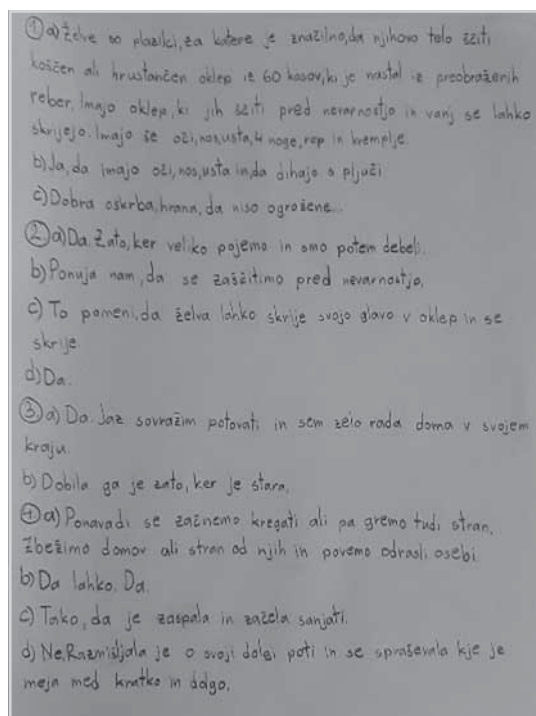 ① a) Želve so plazilci, za katere je značilno, da njihovo telo ščiti
koščen ali hrustančen oklep iz 60 kosov, ki je nastal iz preobraženih
reber. Imajo oklep, ki jih ščiti pred nevarnostjo in vanj se lahko
skrijejo. Imajo še oči, nos, usta, 4 noge, rep in kremplje.
b) Ja, da imajo oči, nos, usta in, da dihajo s pljuči.
c) Dobra oskrba, hrana, da niso ogrožene...
② a) Da. Zato, ker veliko pojemo in smo potem debeli.
b) Ponuja nam, da se zaščitimo pred nevarnostjo.
c) To pomeni, da želva lahko skrije svojo glavo v oklep in se
skrije.
d) Da.
③ a) Da. Jaz sovražim potovati in sem zelo rada doma v svojem
kraju.
b) Dobila ga je zato, ker je stara.
④ a) Ponavadi se začnemo kregati ali pa gremo tudi stran.
Zbežimo domov ali stran od njih in povemo odrasli osebi.
b) Da lahko. Da.
c) Tako, da je zaspala in začela sanjati.
d) Ne. Razmišljala je o svoji dolgi poti in se spraševala kje je
meja med kratko in dolgo.